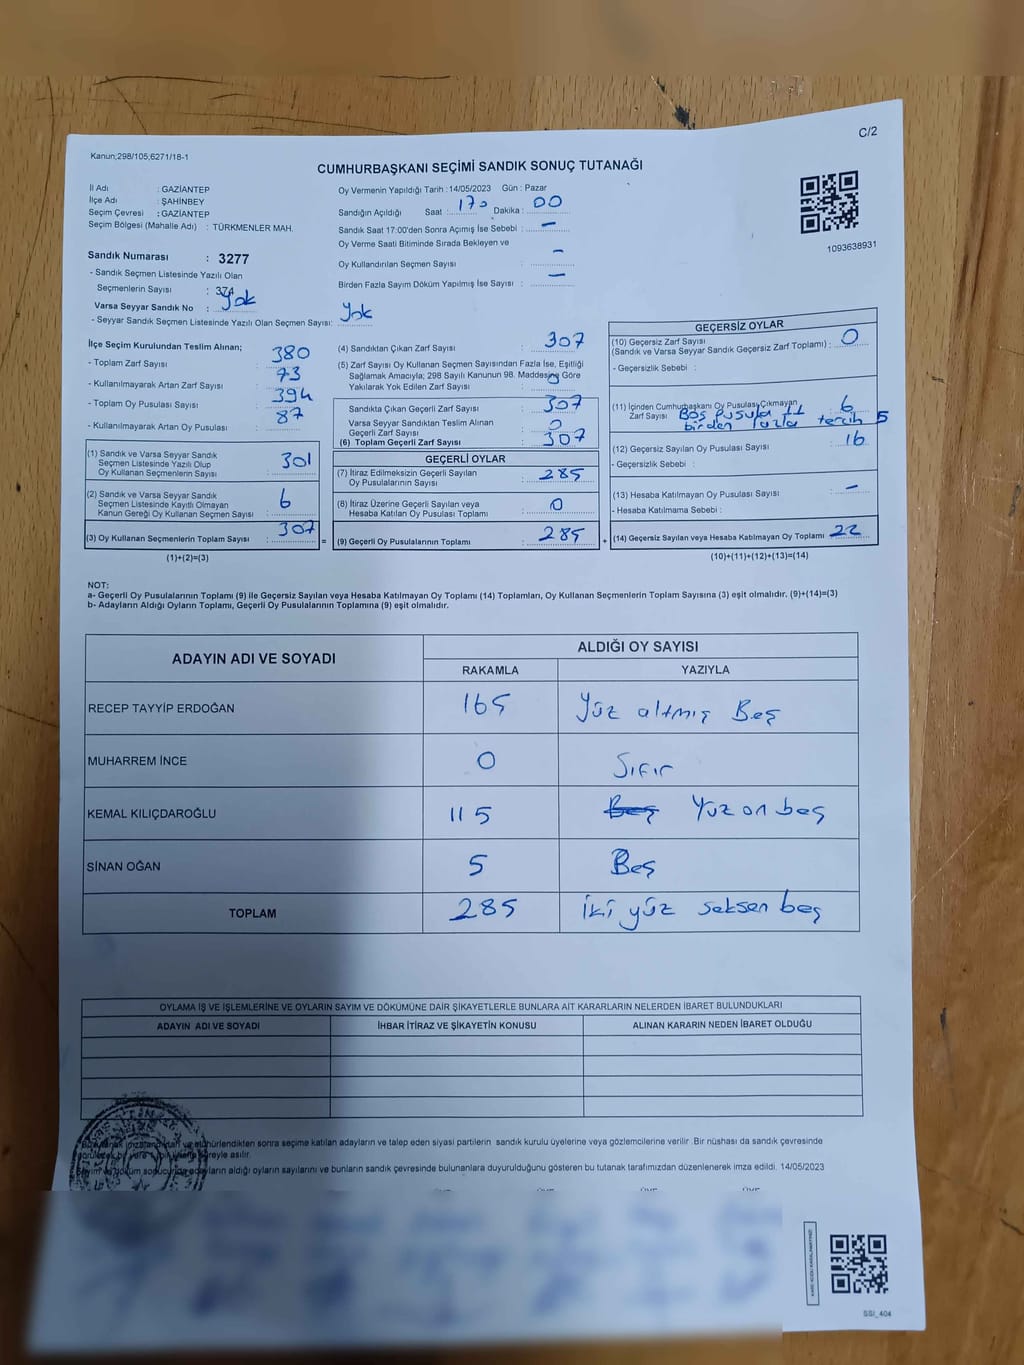 C/2
Kanun;298/105,6271/18-1
CUMHURBAŞKANI SEÇİMİ SANDIK SONUÇ TUTANAĞI
İl Adı : GAZİANTEP
İlçe Adı : ŞAHİNBEY
Seçim Çevresi : GAZİANTEP
Seçim Bölgesi (Mahalle Adı) : TÜRKMENLER MAH.
Sandık Numarası : 3277
- Sandık Seçmen Listesinde Yazılı Olan
Seçmenlerin Sayısı : 374
Varsa Seyyar Sandık No : Yok
- Seyyar Sandık Seçmen Listesinde Yazılı Olan Seçmen Sayısı: Yok
Oy Vermenin Yapıldığı Tarih : 14/05/2023 Gün : Pazar
Sandığın Açıldığı Saat : 17 Dakika : 00
Sandık Saat 17:00'den Sonra Açımış İse Sebebi : -
Oy Verme Saati Bitiminde Sırada Bekleyen ve
Oy Kullandırılan Seçmen Sayısı : -
Birden Fazla Sayım Döküm Yapılmış İse Sayısı : -
1093638931
İlçe Seçim Kurulundan Teslim Alınan;
- Toplam Zarf Sayısı : 380
- Kullanılmayarak Artan Zarf Sayısı : 73
- Toplam Oy Pusulası Sayısı : 394
- Kullanılmayarak Artan Oy Pusulası : 87
(1) Sandık ve Varsa Seyyar Sandık
Seçmen Listesinde Yazılı Olup
Oy Kullanan Seçmenlerin Sayısı : 301
(2) Sandık ve Varsa Seyyar Sandık
Seçmen Listesinde Kayıtlı Olmayan
Kanun Gereği Oy Kullanan Seçmen Sayısı : 6
(3) Oy Kullanan Seçmenlerin Toplam Sayısı : 307 =
(1)+(2)=(3)
(4) Sandıktan Çıkan Zarf Sayısı : 307
(5) Zarf Sayısı Oy Kullanan Seçmen Sayısından Fazla İse, Eşitliği
Sağlamak Amacıyla; 298 Sayılı Kanunun 98. Maddesine Göre
Yakılarak Yok Edilen Zarf Sayısı : 0
Sandıkta Çıkan Geçerli Zarf Sayısı : 307
Varsa Seyyar Sandıktan Teslim Alınan
Geçerli Zarf Sayısı : 0
(6) Toplam Geçerli Zarf Sayısı : 307
GEÇERLİ OYLAR
(7) İtiraz Edilmeksizin Geçerli Sayılan
Oy Pusulalarının Sayısı : 285
(8) İtiraz Üzerine Geçerli Sayılan veya
Hesaba Katılan Oy Pusulası Toplamı : 0
(9) Geçerli Oy Pusulalarının Toplamı : 285 +
GEÇERSİZ OYLAR
(10) Geçersiz Zarf Sayısı
(Sandık ve Varsa Seyyar Sandık Geçersiz Zarf Toplamı) : 0
- Geçersizlik Sebebi :
(11) İçinden Cumhurbaşkanı Oy Pusulası Çıkmayan
Zarf Sayısı : 6
Boş Pusula 11
birden fazla tercih 5
(12) Geçersiz Sayılan Oy Pusulası Sayısı : 16
- Geçersizlik Sebebi :
(13) Hesaba Katılmayan Oy Pusulası Sayısı : -
- Hesaba Katılmama Sebebi :
(14) Geçersiz Sayılan veya Hesaba Katılmayan Oy Toplamı : 22
(10)+(11)+(12)+(13)=(14)
NOT:
a- Geçerli Oy Pusulalarının Toplamı (9) ile Geçersiz Sayılan veya Hesaba Katılmayan Oy Toplamı (14) Toplamları, Oy Kullanan Seçmenlerin Toplam Sayısına (3) eşit olmalıdır. (9)+(14)=(3)
b- Adayların Aldığı Oyların Toplamı, Geçerli Oy Pusulalarının Toplamına (9) eşit olmalıdır.
ADAYIN ADI VE SOYADI ALDIĞI OY SAYISI
RAKAMLA YAZIYLA
RECEP TAYYİP ERDOĞAN 165 Yüz altmış Beş
MUHARREM İNCE 0 Sıfır
KEMAL KILIÇDAROĞLU 115 Beş Yüz on beş
SİNAN OĞAN 5 Beş
TOPLAM 285 iki yüz seksen beş
OYLAMA İŞ VE İŞLEMLERİNE VE OYLARIN SAYIM VE DÖKÜMÜNE DAİR ŞİKAYETLERLE BUNLARA AİT KARARLARIN NELERDEN İBARET BULUNDUKLARI
ADAYIN ADI VE SOYADI İHBAR İTİRAZ VE ŞİKAYETİN KONUSU ALINAN KARARIN NEDEN İBARET OLDUĞU
sonra seçime katılan adayların ve talep eden siyasi partilerin sandık kurulu üyelerine veya gözlemcilerine verilir .Bir nüshası da sandık çevresinde
asılır.
aldığı oyların sayılarını ve bunların sandık çevresinde bulunanlara duyurulduğunu gösteren bu tutanak tarafımızdan düzenlenerek imza edildi. 14/05/2023
SSI_404